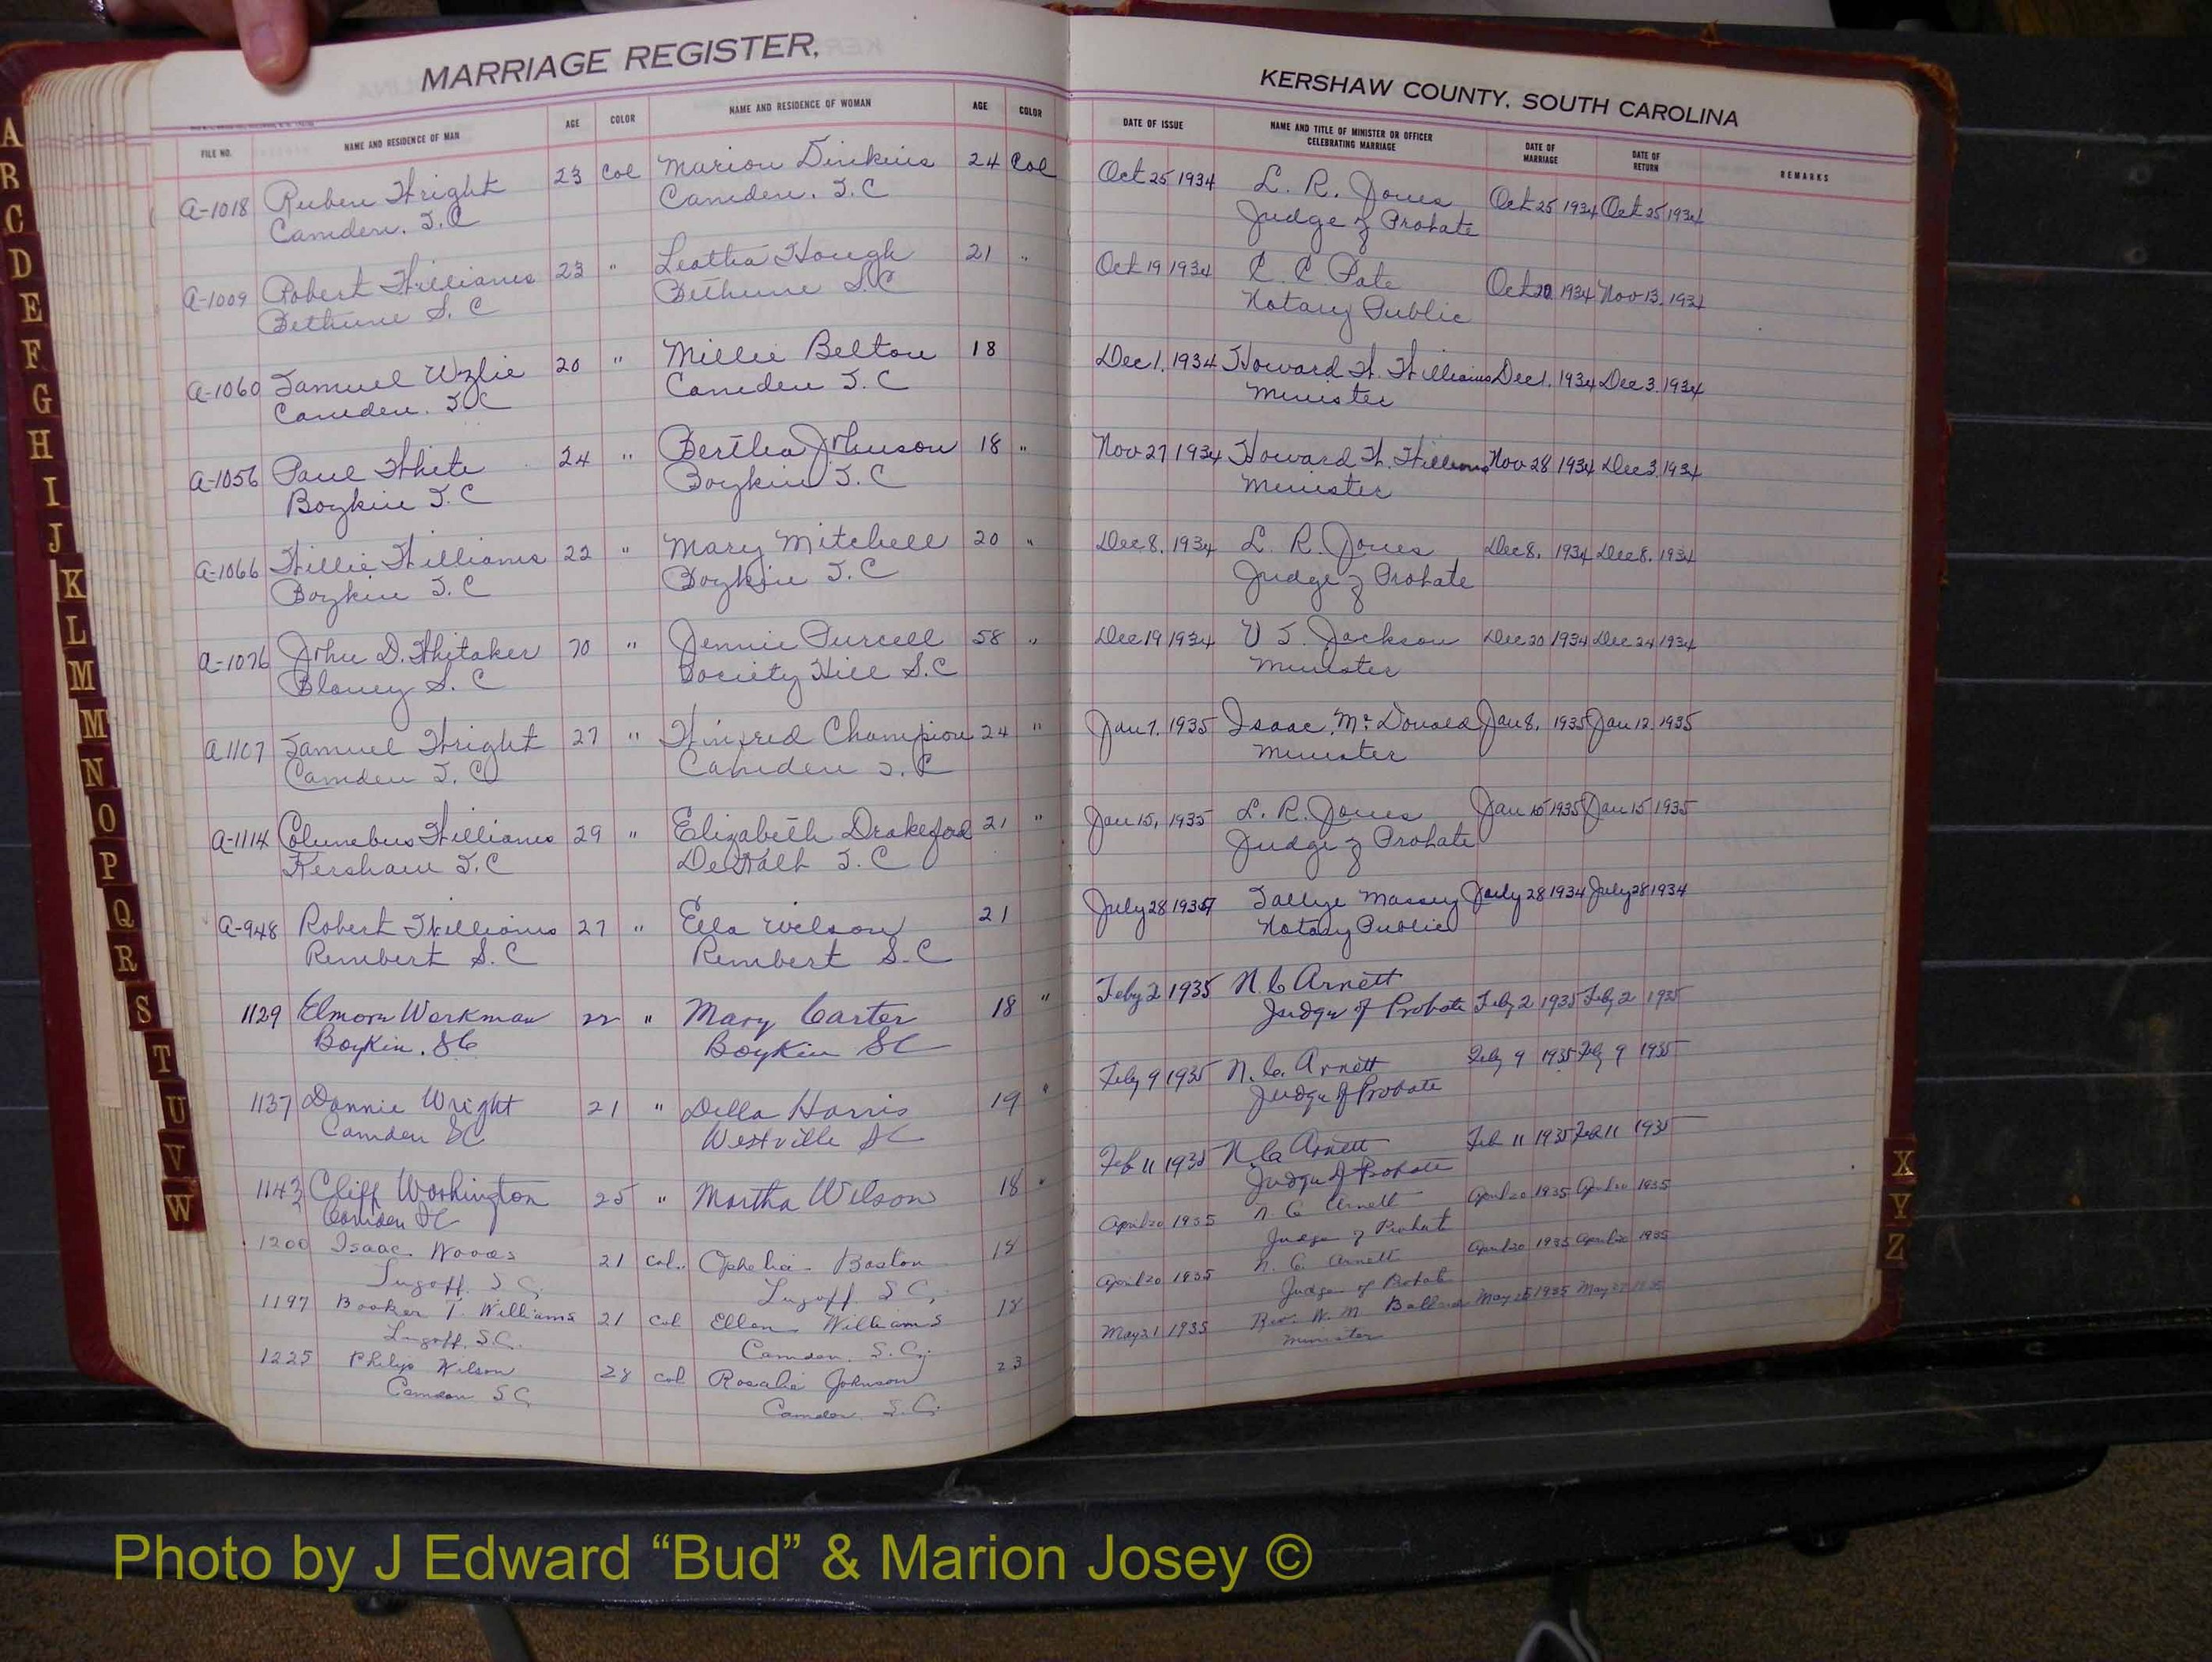 MARRIAGE REGISTER,
FILE NO. NAME AND RESIDENCE OF MAN AGE COLOR NAME AND RESIDENCE OF WOMAN AGE COLOR
A-1018 Ruben Wright 23 Col Marion Dinkins 24 Col
Camden. S.C Camden. S.C
A-1009 Robert Williams 23 " Leatha Hough 21 "
Bethune S. C Bethune S.C
A-1060 Samuel 20 " Millie Belton 18
Camden. S.C Camden S.C
A-1056 Paul White 24 " Bertha Johnson 18 "
Boykin S.C Boykin S.C
A-1066 Willie Williams 22 " Mary Mitchell 20 "
Boykin S.C Boykin S.C
A-1076 John D. Whitaker 70 " Jennie Purcell 58 "
Blaney S. C Society Hill S.C
A1107 Samuel Wright 27 " Winfred Champion 24 "
Camden S. C Camden S. C
A-1114 Columbus Williams 29 " Elizabeth Drakeford 21 "
Kershaw S.C S. C
A-948 Robert Williams 27 " Ella Wilson 21
Rembert S. C Rembert S. C
1129 Workman 22 " Mary Carter 18 "
Boykin. SC Boykin SC
1137 Dannie Wright 21 " Della Harris 19 "
Camden SC Westville SC
1143 Cliff Washington 25 " Martha Wilson 18 "
Camden SC
1200 Isaac Woods 21 Col. Ophelia Boston 18
Lugoff. S C. Lugoff. S C.
1197 Booker T. Williams 21 Col Ellen Williams 18
Lugoff. S.C. Camden. S. C.
1225 Philip Wilson 28 Col Rosalie Johnson 23
Camden S C Camden. S. C.
KERSHAW COUNTY, SOUTH CAROLINA
DATE OF ISSUE NAME AND TITLE OF MINISTER OR OFFICER CELEBRATING MARRIAGE DATE OF MARRIAGE DATE OF RETURN REMARKS
Oct 25 1934 L. R. Jones Oct 25 1934 Oct 25 1934
Judge of Probate
Oct 19 1934 C. C. Pate Oct 20 1934 Nov 13. 1934
Notary Public
Dec 1, 1934 Howard W. Williams Dec 1. 1934 Dec 3. 1934
Minister
Nov 27 1934 Howard W. Williams Nov 28 1934 Dec 3. 1934
Minister
Dec 8. 1934 L. R. Jones Dec 8. 1934 Dec 8. 1934
Judge of Probate
Dec 19 1934 Jackson Dec 20 1934 Dec 24 1934
Minister
Jan 7. 1935 Isaac. Mc Donald Jan 8. 1935 Jan 12. 1935
Minister
Jan 15, 1935 L. R. Jones Jan 15 1935 Jan 15 1935
Judge of Probate
July 28 Massey July 28 1934 July 28 1934
Notary Public
Feby 2 1935 N. C Arnett Feby 2 1935 Feby 2 1935
Judge of Probate
Feby 9 1935 N. C. Arnett Feby 9 1935 Feby 9 1935
Judge of Probate
Feb 11 1935 N C Arnett Feb 11 1935 Feb 11 1935
Judge of Probate
April 20 1935 N. C Arnett April 20 1935 April 20 1935
Judge of Probate
April 20 1935 N. C. Arnett April 20 1935 April 20 1935
Judge of Probate
May 21 1935 Rev. W. M May 25 1935 May
Minister
A
B
C
D
E
F
G
H
I
J
K
L
M
M
N
O
P
Q
R
S
T
U
V
W
X
Y
Z
Photo by J Edward “Bud” & Marion Josey ©